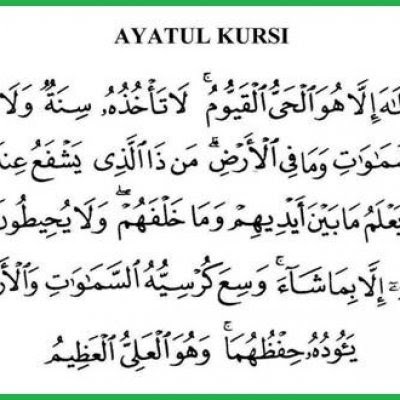 AYATUL KURSI
لَٰهَ إِلَّا هُوَ الْحَيُّ الْقَيُّومُ ۚ لَا تَأْخُذُهُۥ سِنَةٌ وَلَا
سَّمَٰوَٰتِ وَمَا فِي الْأَرْضِ ۗ مَن ذَا الَّذِي يَشْفَعُ عِند
يَعْلَمُ مَا بَيْنَ أَيْدِيهِمْ وَمَا خَلْفَهُمْ ۖ وَلَا يُحِيطُون
إِلَّا بِمَا شَآءَ ۚ وَسِعَ كُرْسِيُّهُ السَّمَٰوَٰتِ وَالْأَر
يَـُٔودُهُۥ حِفْظُهُمَا ۚ وَهُوَ الْعَلِيُّ الْعَظِيمُ